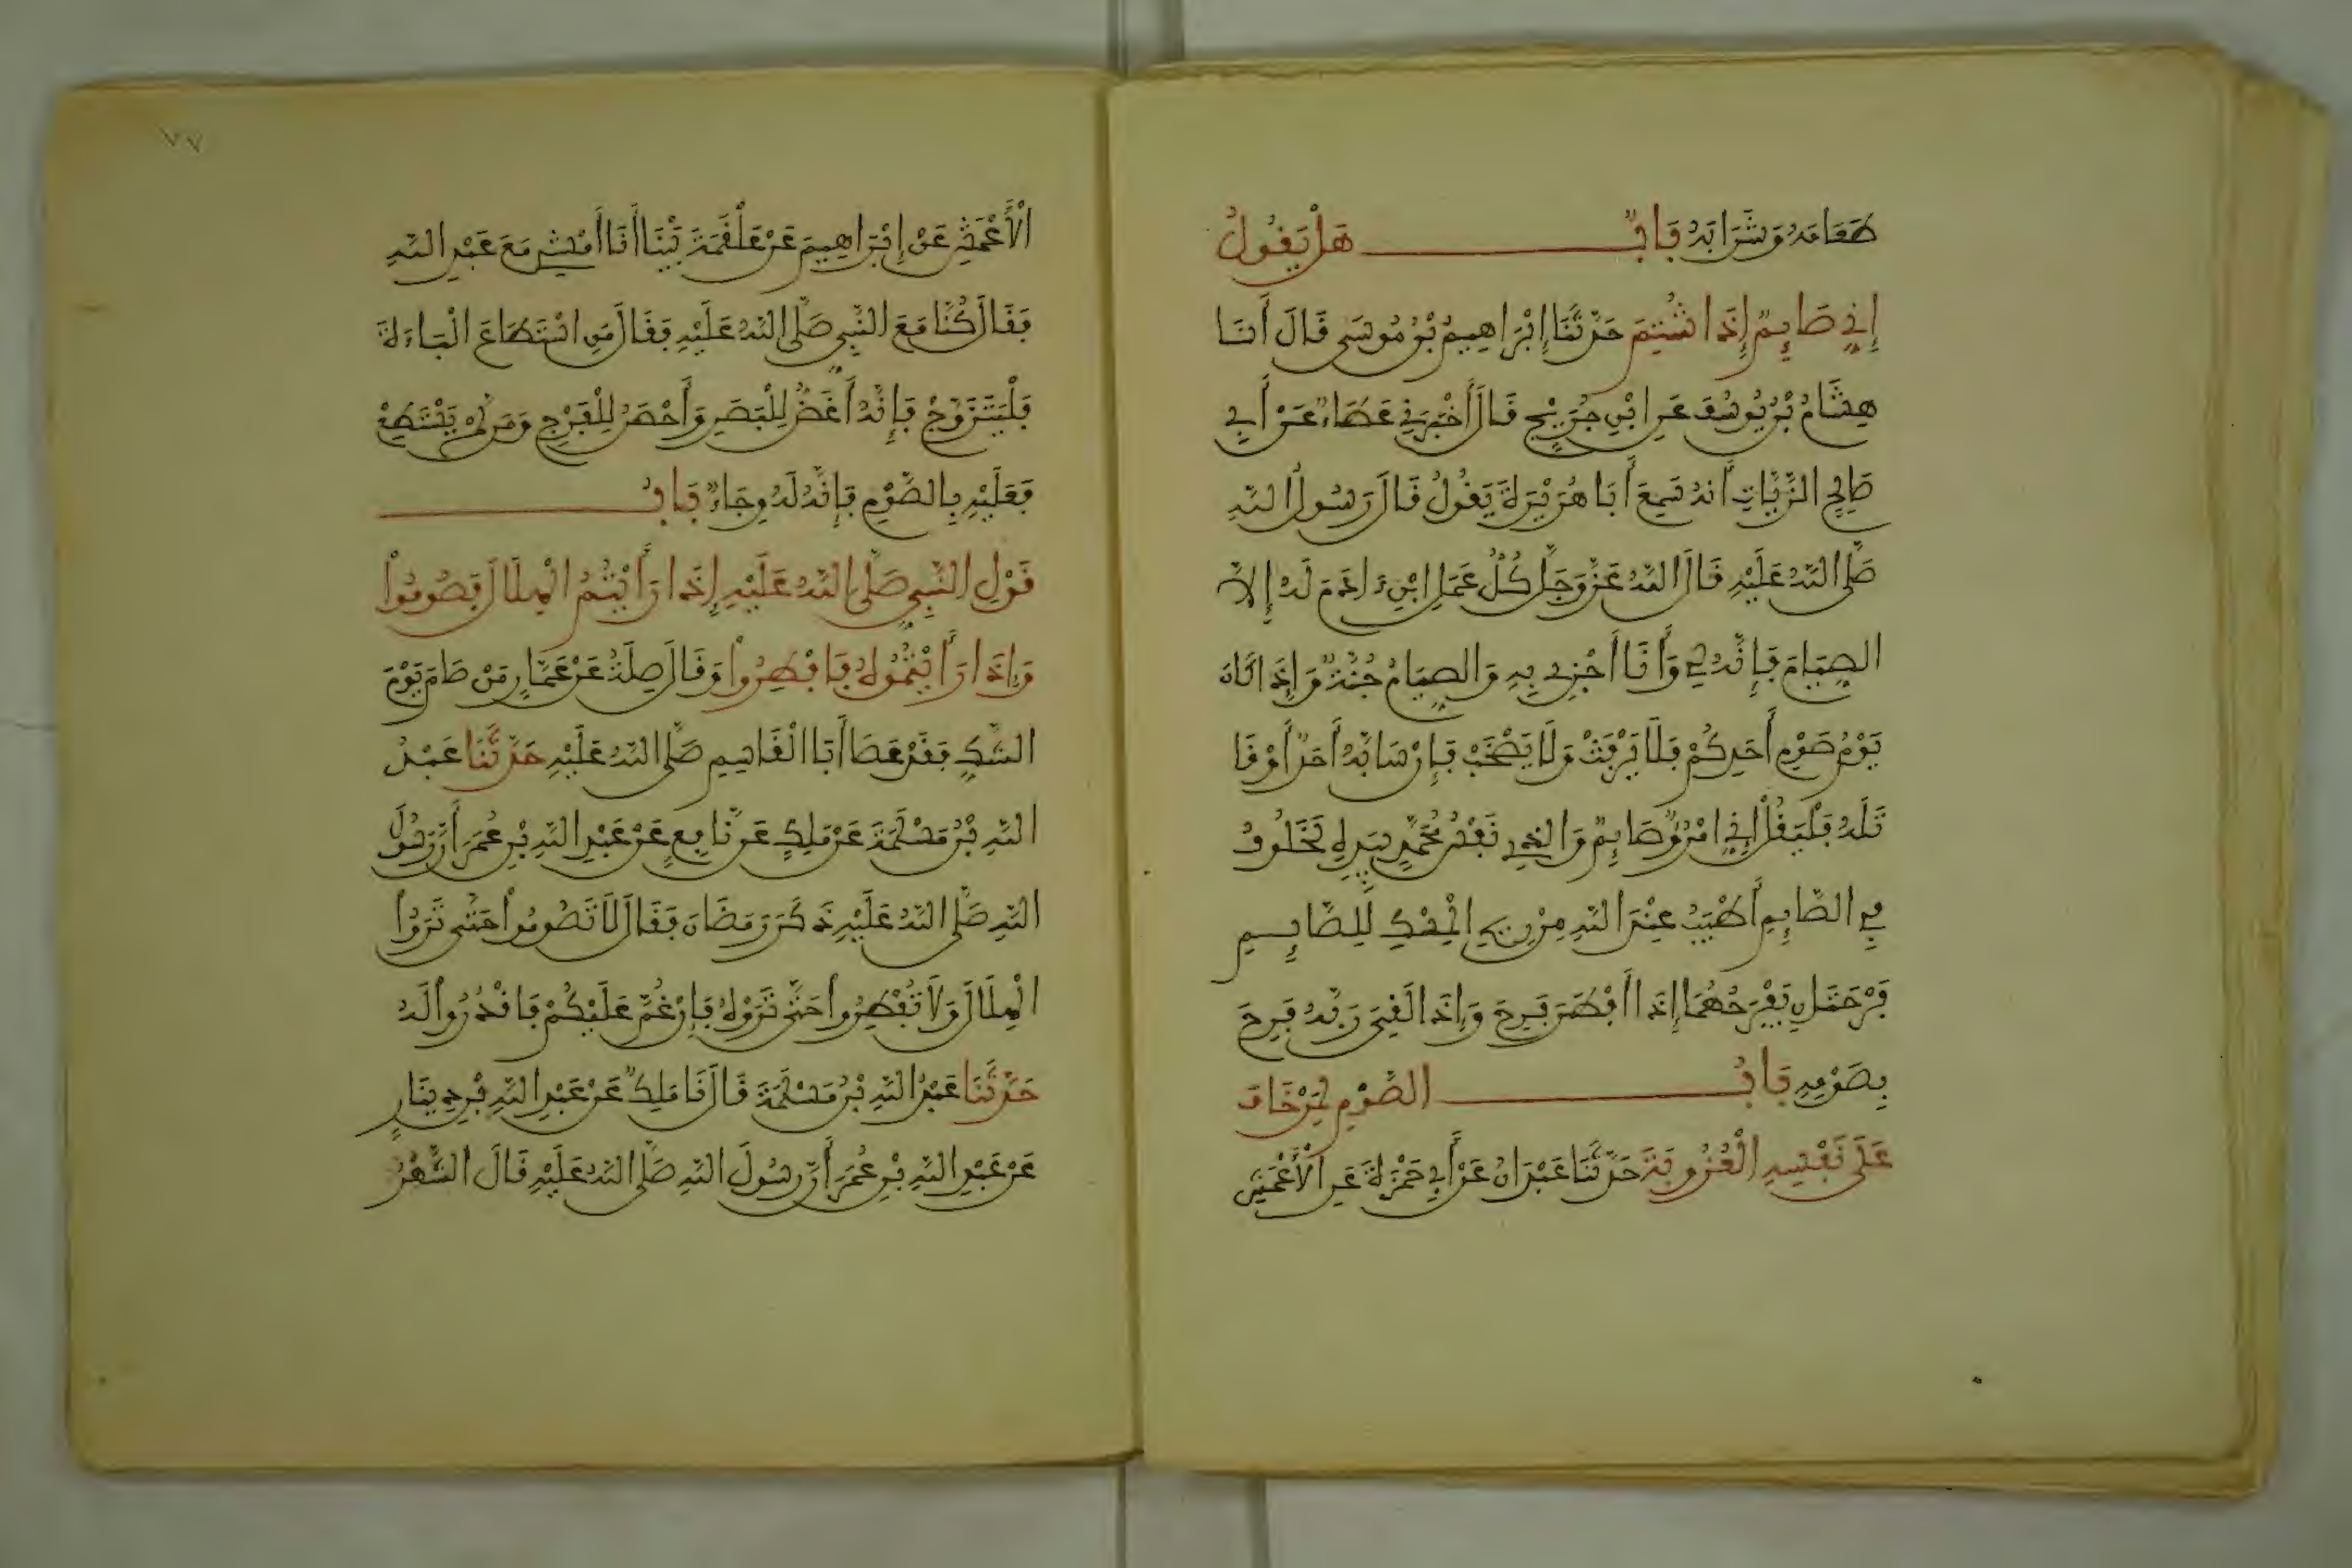 طَعَامَهُ وَشَرَابَهُ بَابٌ هَلْ يَقُولُ
إِنِّي صَايِمٌ إِذَا شُتِمَ حَدَّثَنَا إِبْرَاهِيمُ بْنُ مُوسَى قَالَ أَنَا
هِشَامُ بْنُ يُوسُفَ عَنِ ابْنِ جُرَيْجٍ قَالَ أَخْبَرَنِي عَطَاءٌ عَنْ أَبِي
صَالِحٍ الزَّيَّاتِ أَنَّهُ سَمِعَ أَبَا هُرَيْرَةَ يَقُولُ قَالَ رَسُولُ اللَّهِ
صَلَّى اللَّهُ عَلَيْهِ قَالَ اللَّهُ عَزَّ وَجَلَّ كُلُّ عَمَلِ ابْنِ ءَادَمَ لَهُ إِلَّا
الصِّيَامَ فَإِنَّهُ لِي وَأَنَا أَجْزِي بِهِ وَالصِّيَامُ جُنَّةٌ وَإِذَا كَانَ
يَوْمُ صَوْمِ أَحَدِكُمْ فَلَا يَرْفَثْ وَلَا يَصْخَبْ فَإِنْ سَابَّهُ أَحَدٌ أَوْ قَا
تَلَهُ فَلْيَقُلْ إِنِّي امْرُؤٌ صَايِمٌ وَالَّذِي نَفْسُ مُحَمَّدٍ بِيَدِهِ لَخَلُوفُ
فِي الصَّايِمِ أَطْيَبُ عِنْدَ اللَّهِ مِنْ رِيحِ الْمِسْكِ لِلصَّايِمِ
فَرْحَتَانِ يَفْرَحُهُمَا إِذَا أَفْطَرَ فَرِحَ وَإِذَا لَقِيَ رَبَّهُ فَرِحَ
بِصَوْمِهِ بَابُ الصَّوْمِ لِمَنْ خَافَ
عَلَى نَفْسِهِ الْعُزُوبَةَ حَدَّثَنَا عَبْدَانُ عَنْ أَبِي حَمْزَةَ عَنِ الْأَعْمَشِ
٧٧
الْأَعْمَشِ عَنْ إِبْرَاهِيمَ عَنْ عَلْقَمَةَ بَيْنَا أَنَا أَمْشِي مَعَ عَبْدِ اللَّهِ
فَقَالَ كُنَّا مَعَ النَّبِيِّ صَلَّى اللَّهُ عَلَيْهِ فَقَالَ مَنِ اسْتَطَاعَ الْبَاءَةَ
فَلْيَتَزَوَّجْ فَإِنَّهُ أَغَضُّ لِلْبَصَرِ وَأَحْصَنُ لِلْفَرْجِ وَمَنْ لَمْ يَسْتَطِعْ
فَعَلَيْهِ بِالصَّوْمِ فَإِنَّهُ لَهُ وِجَاءٌ بَابُ
قَوْلِ النَّبِيِّ صَلَّى اللَّهُ عَلَيْهِ إِذَا رَأَيْتُمُ الْهِلَالَ فَصُومُوا
وَإِذَا رَأَيْتُمُوهُ فَافْطِرُوا وَقَالَ صِلَةُ عَنْ عَمَّارٍ مَنْ صَامَ يَوْمَ
الشَّكِّ فَقَدْ عَصَا أَبَا الْقَاسِمِ صَلَّى اللَّهُ عَلَيْهِ حَدَّثَنَا عَبْدُ
اللَّهِ بْنُ مَسْلَمَةَ عَنْ مَلِكٍ عَنْ نَّافِعٍ عَنْ عَبْدِ اللَّهِ بْنِ عُمَرَ أَنَّ رَسُولَ
اللَّهِ صَلَّى اللَّهُ عَلَيْهِ ذَكَرَ رَمَضَانَ فَقَالَ لَا تَصُومُوا حَتَّى تَرَوُا
الْهِلَالَ وَلَا تُفْطِرُوا حَتَّى تَرَوْهُ فَإِنْ غُمَّ عَلَيْكُمْ فَاقْدُرُوا لَهُ
حَدَّثَنَا عَبْدُ اللَّهِ بْنُ مَسْلَمَةَ قَالَ نَا مَلِكٌ عَنْ عَبْدِ اللَّهِ بْنِ دِينَارٍ
عَنْ عَبْدِ اللَّهِ بْنِ عُمَرَ أَنَّ رَسُولَ اللَّهِ صَلَّى اللَّهُ عَلَيْهِ قَالَ الشَّهْرُ